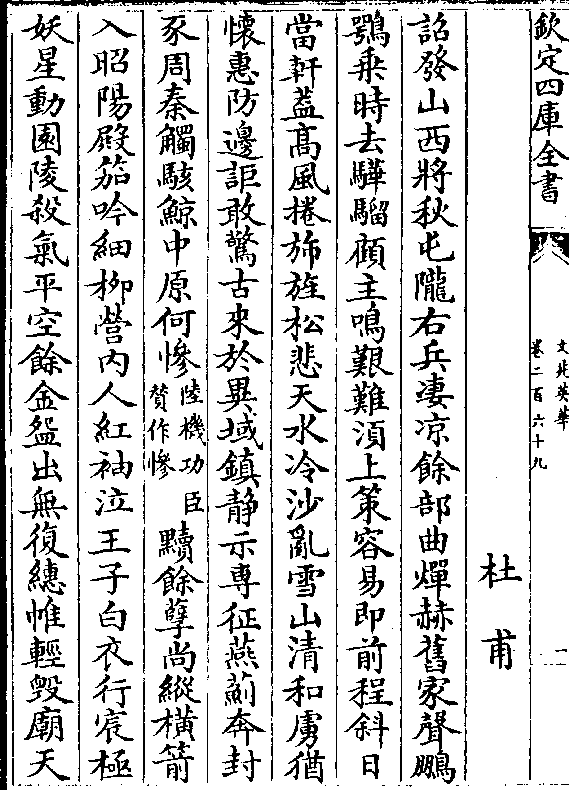 欽定四庫全書
文苑英華
卷二百六十九
一
杜甫
詔發山西將秋屯隴右兵淒凉餘部曲燀赫舊家聲鵰
鶚乗時去驊騮顧主鳴艱難湏上策容易即前程斜日
當軒葢髙風捲斾旌松悲天水冷沙亂雪山清和虜猶
懷惠防邊詎敢驚古來於異域鎮静示専征燕薊奔封
豕周秦觸駭鯨中原何慘陸機功臣賛作慘黷餘孽尚縱橫箭
入昭陽殿笳吟細柳營内人紅袖泣王子白衣行宸極
妖星動園陵殺氣平空餘金盌出無復繐帷輕毁廟天